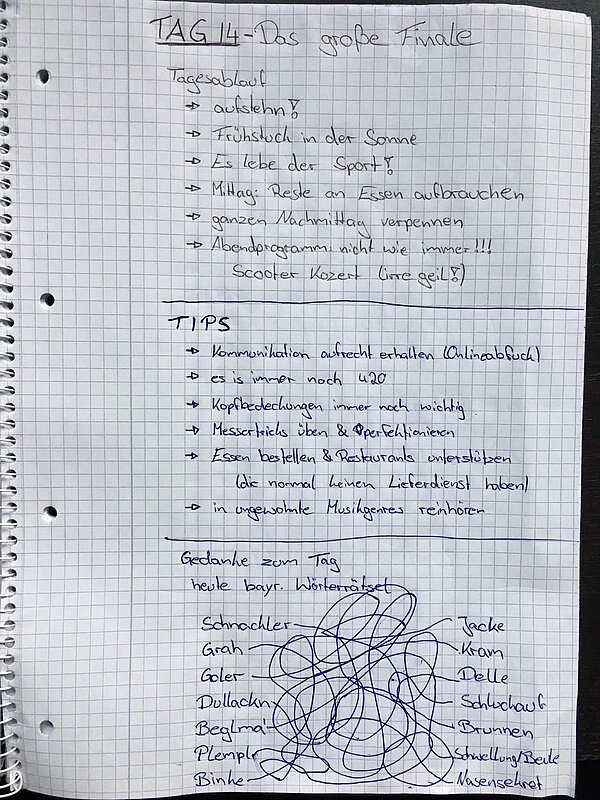 TAG 14 - Das große Finale
Tagesablauf
→ aufstehn!
→ Frühstück in der Sonne
→ Es lebe der Sport!
→ Mittag: Reste an Essen aufbrauchen
→ ganzen Nachmittag verpennen
→ Abendprogramm: nicht wie immer!!!
Scooter Kozert (irre geil!)
TIPS
→ Kommunikation aufrecht erhalten (Onlineabfuck)
→ es is immer noch 420
→ Kopfbedeckungen immer noch wichtig
→ Messertricks üben & perfektionieren
→ Essen bestellen & Restaurants unterstützen
(die normal keinen Lieferdienst haben)
→ in ungewohnte Musikgenres reinhören
Gedanke zum Tag
heute bayr. Wörterrätsel
Schnachler Jacke
Grah Kram
Goler Delle
Dullackn Schluchauf
Beglma' Brunnen
Plempl Schwellung/Beule
Binke Nasensekret